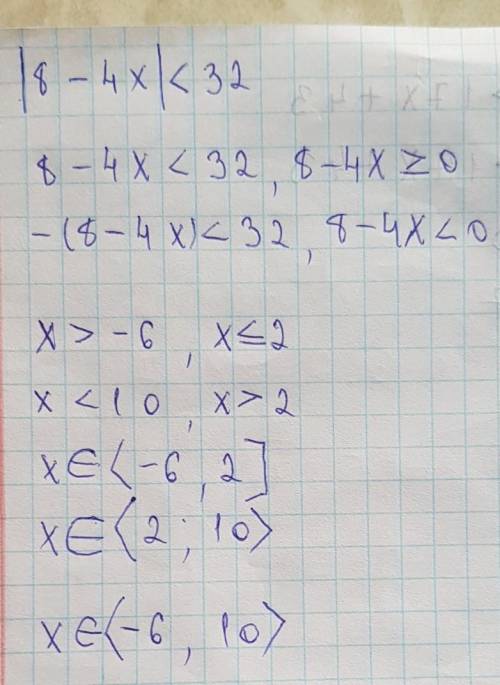 |8 - 4x| < 32
8 - 4x < 32, 8 - 4x ≥ 0
-(8 - 4x) < 32, 8 - 4x < 0
x > -6, x ≤ 2
x < 10, x > 2
x ∈ ⟨-6, 2]
x ∈ ⟨2; 10⟩
x ∈ ⟨-6, 10⟩